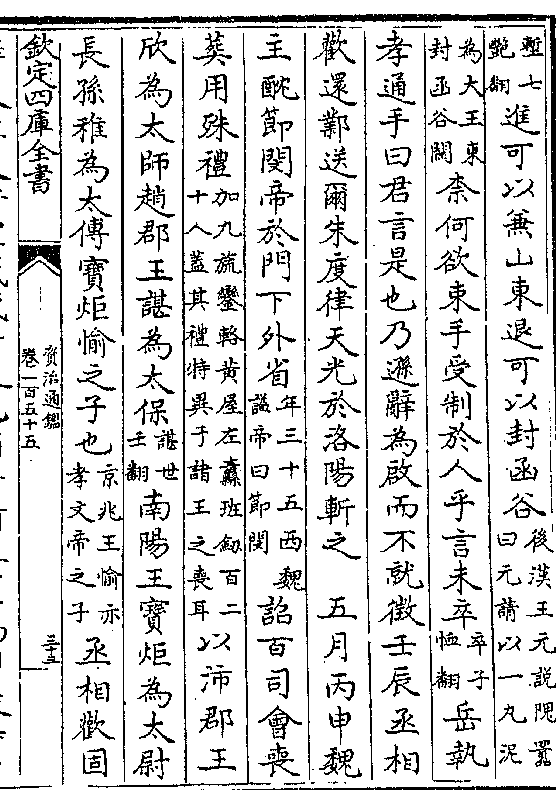 塹七艷翻進可以兼山東退可以封函谷後漢王元說隗囂曰元請以一丸泥
為大王東封函谷關柰何欲束手受制於人乎言未卒卒子恤翻岳執
孝通手曰君言是也乃遜辭為啟而不就徵壬辰丞相
歡還鄴送爾朱度律天光於洛陽斬之　五月丙申魏
主酖節閔帝於門下外省年三十五西魏諡帝曰節閔詔百司會喪
葬用殊禮加九旒鑾輅黃屋左纛班劒百二十人蓋其禮特異于諸王之喪耳以沛郡王
欣為太師趙郡王諶為太保諶世壬翻南陽王寶炬為太尉
長孫稚為太傅寶炬愉之子也京兆王愉亦孝文帝之子丞相歡固
欽定四庫全書
資治通鑑
卷一百五十五
三十三